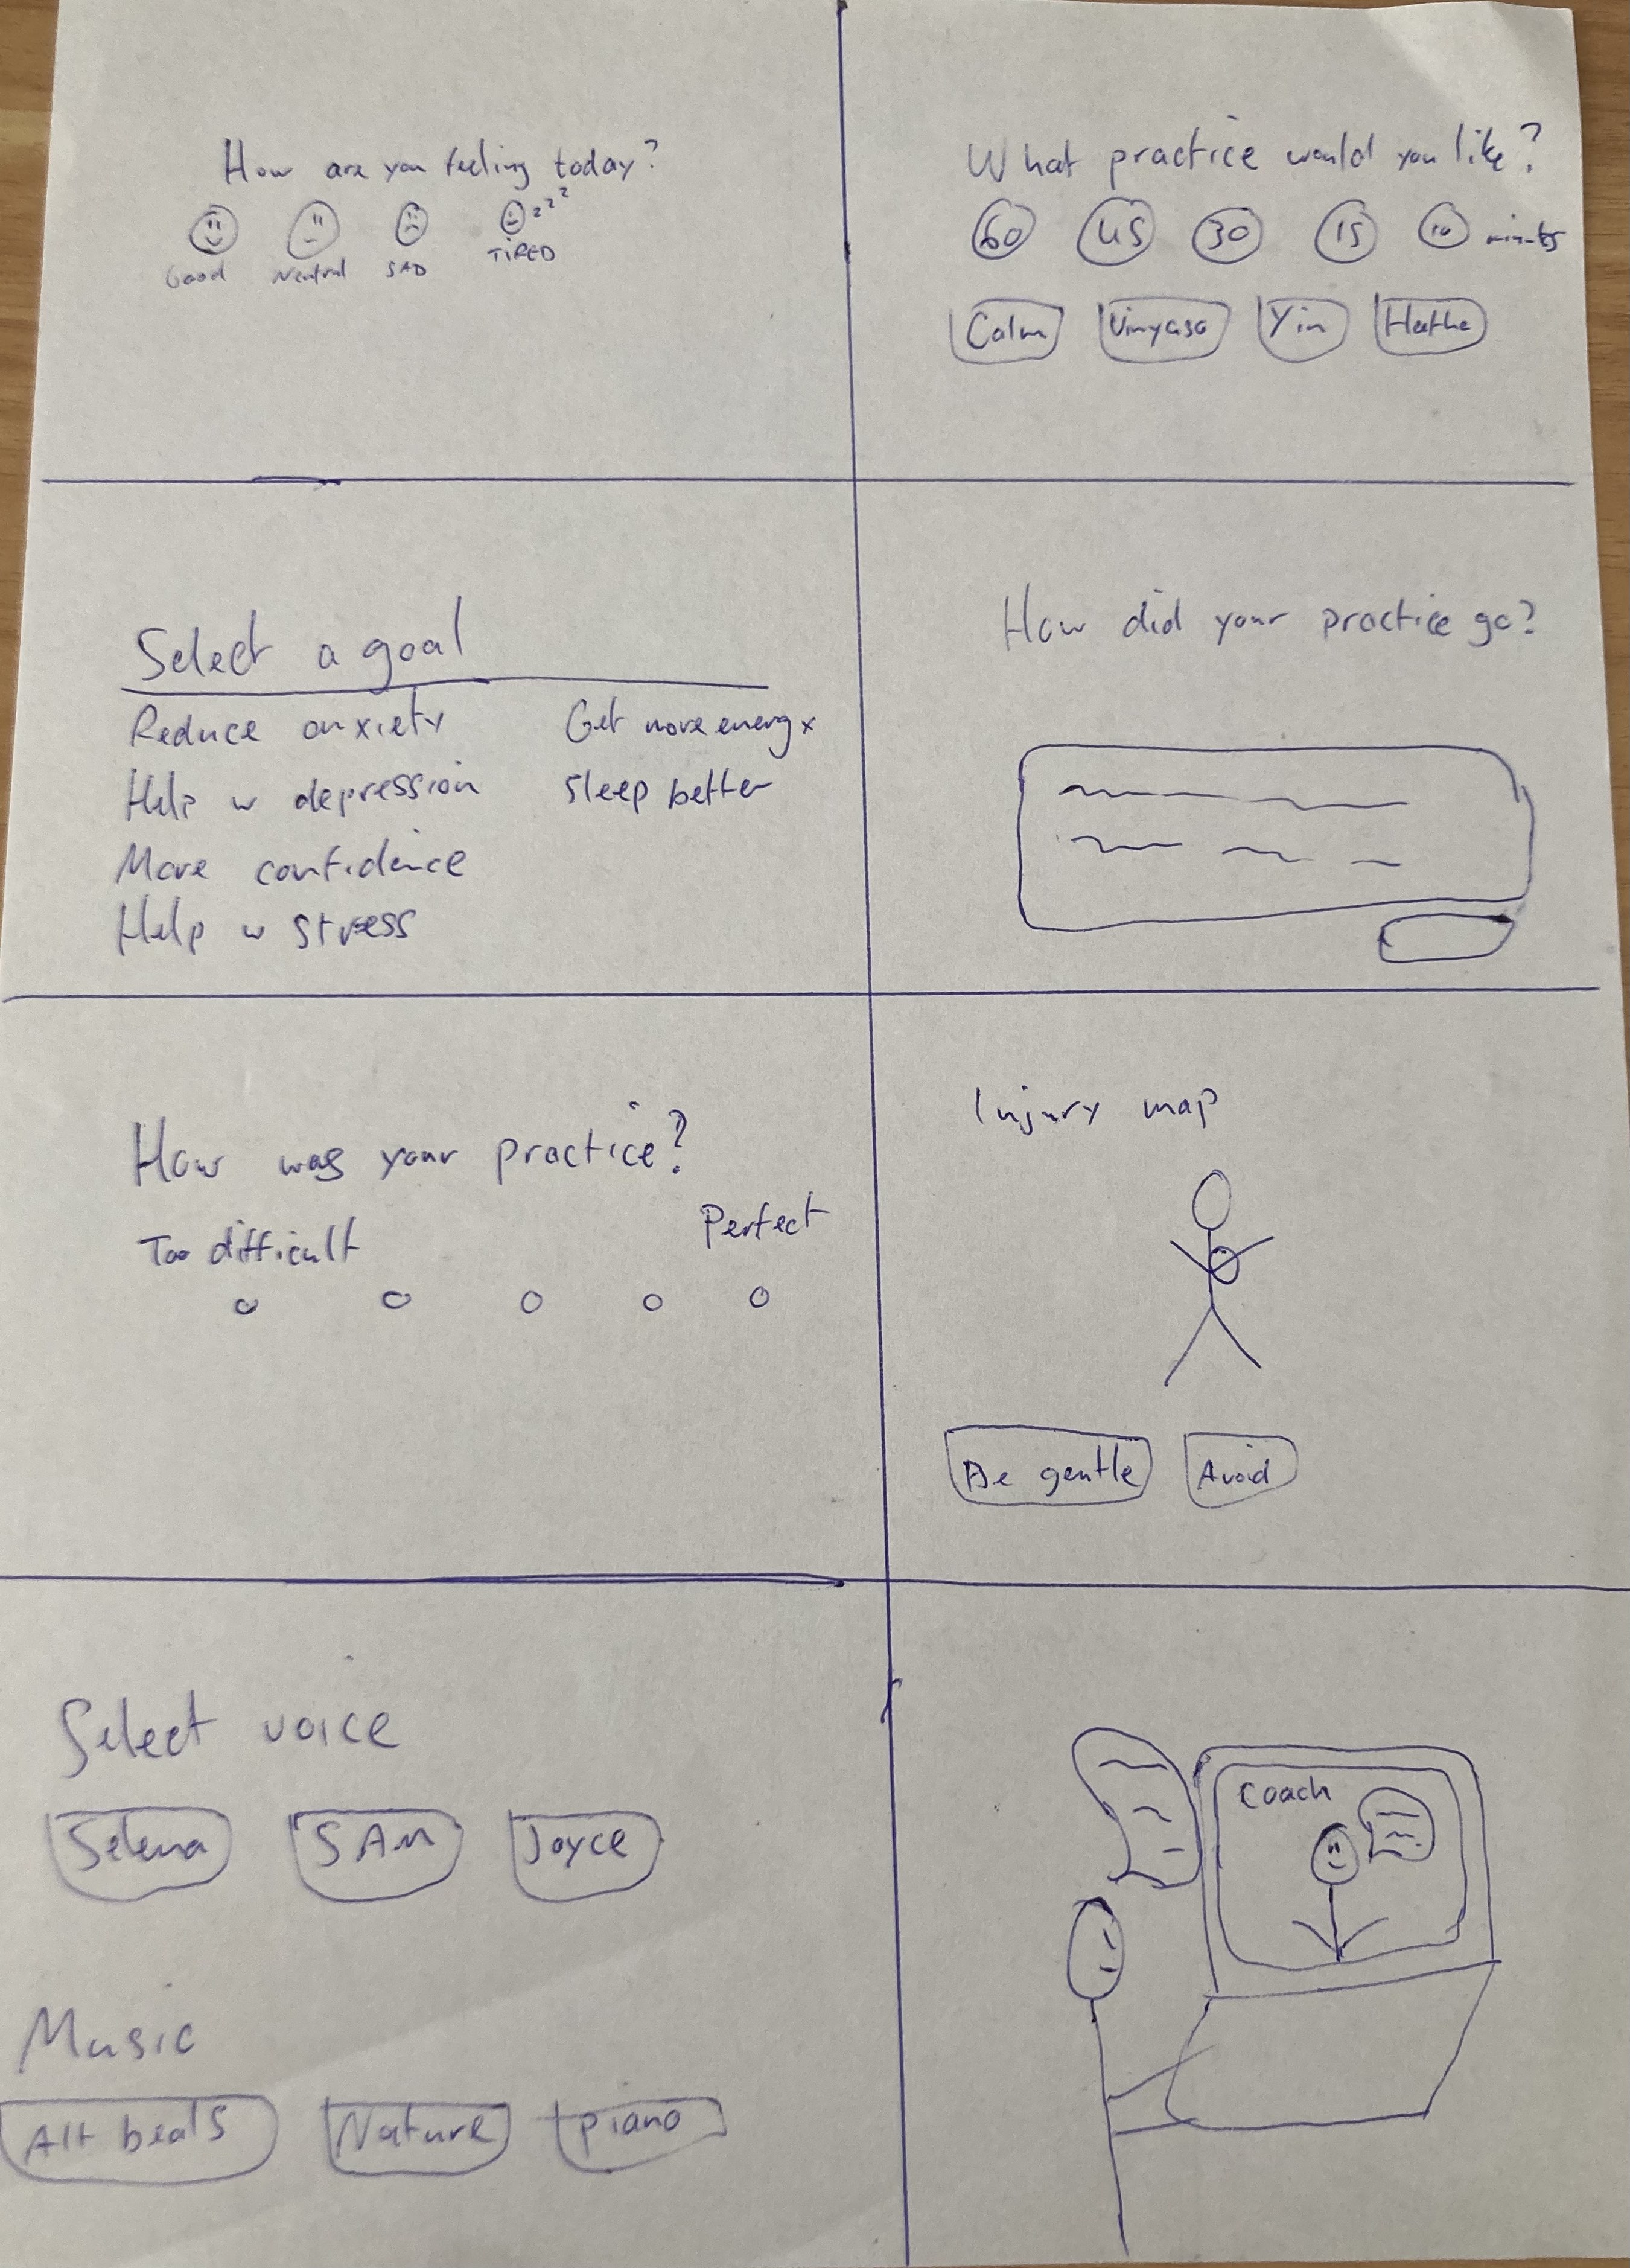 How are you feeling today?
Good Neutral SAD TIRED zzz
What practice would you like?
60 45 30 15 10 minutes
Calm Vinyasa Yin Hatha
Select a goal
Reduce anxiety Get more energy
Help w depression Sleep better
More confidence
Help w stress
How did your practice go?
How was your practice?
Too difficult Perfect
Injury map
Be gentle Avoid
Select voice
Selena SAM Joyce
Music
Alt beats Nature piano
Coach